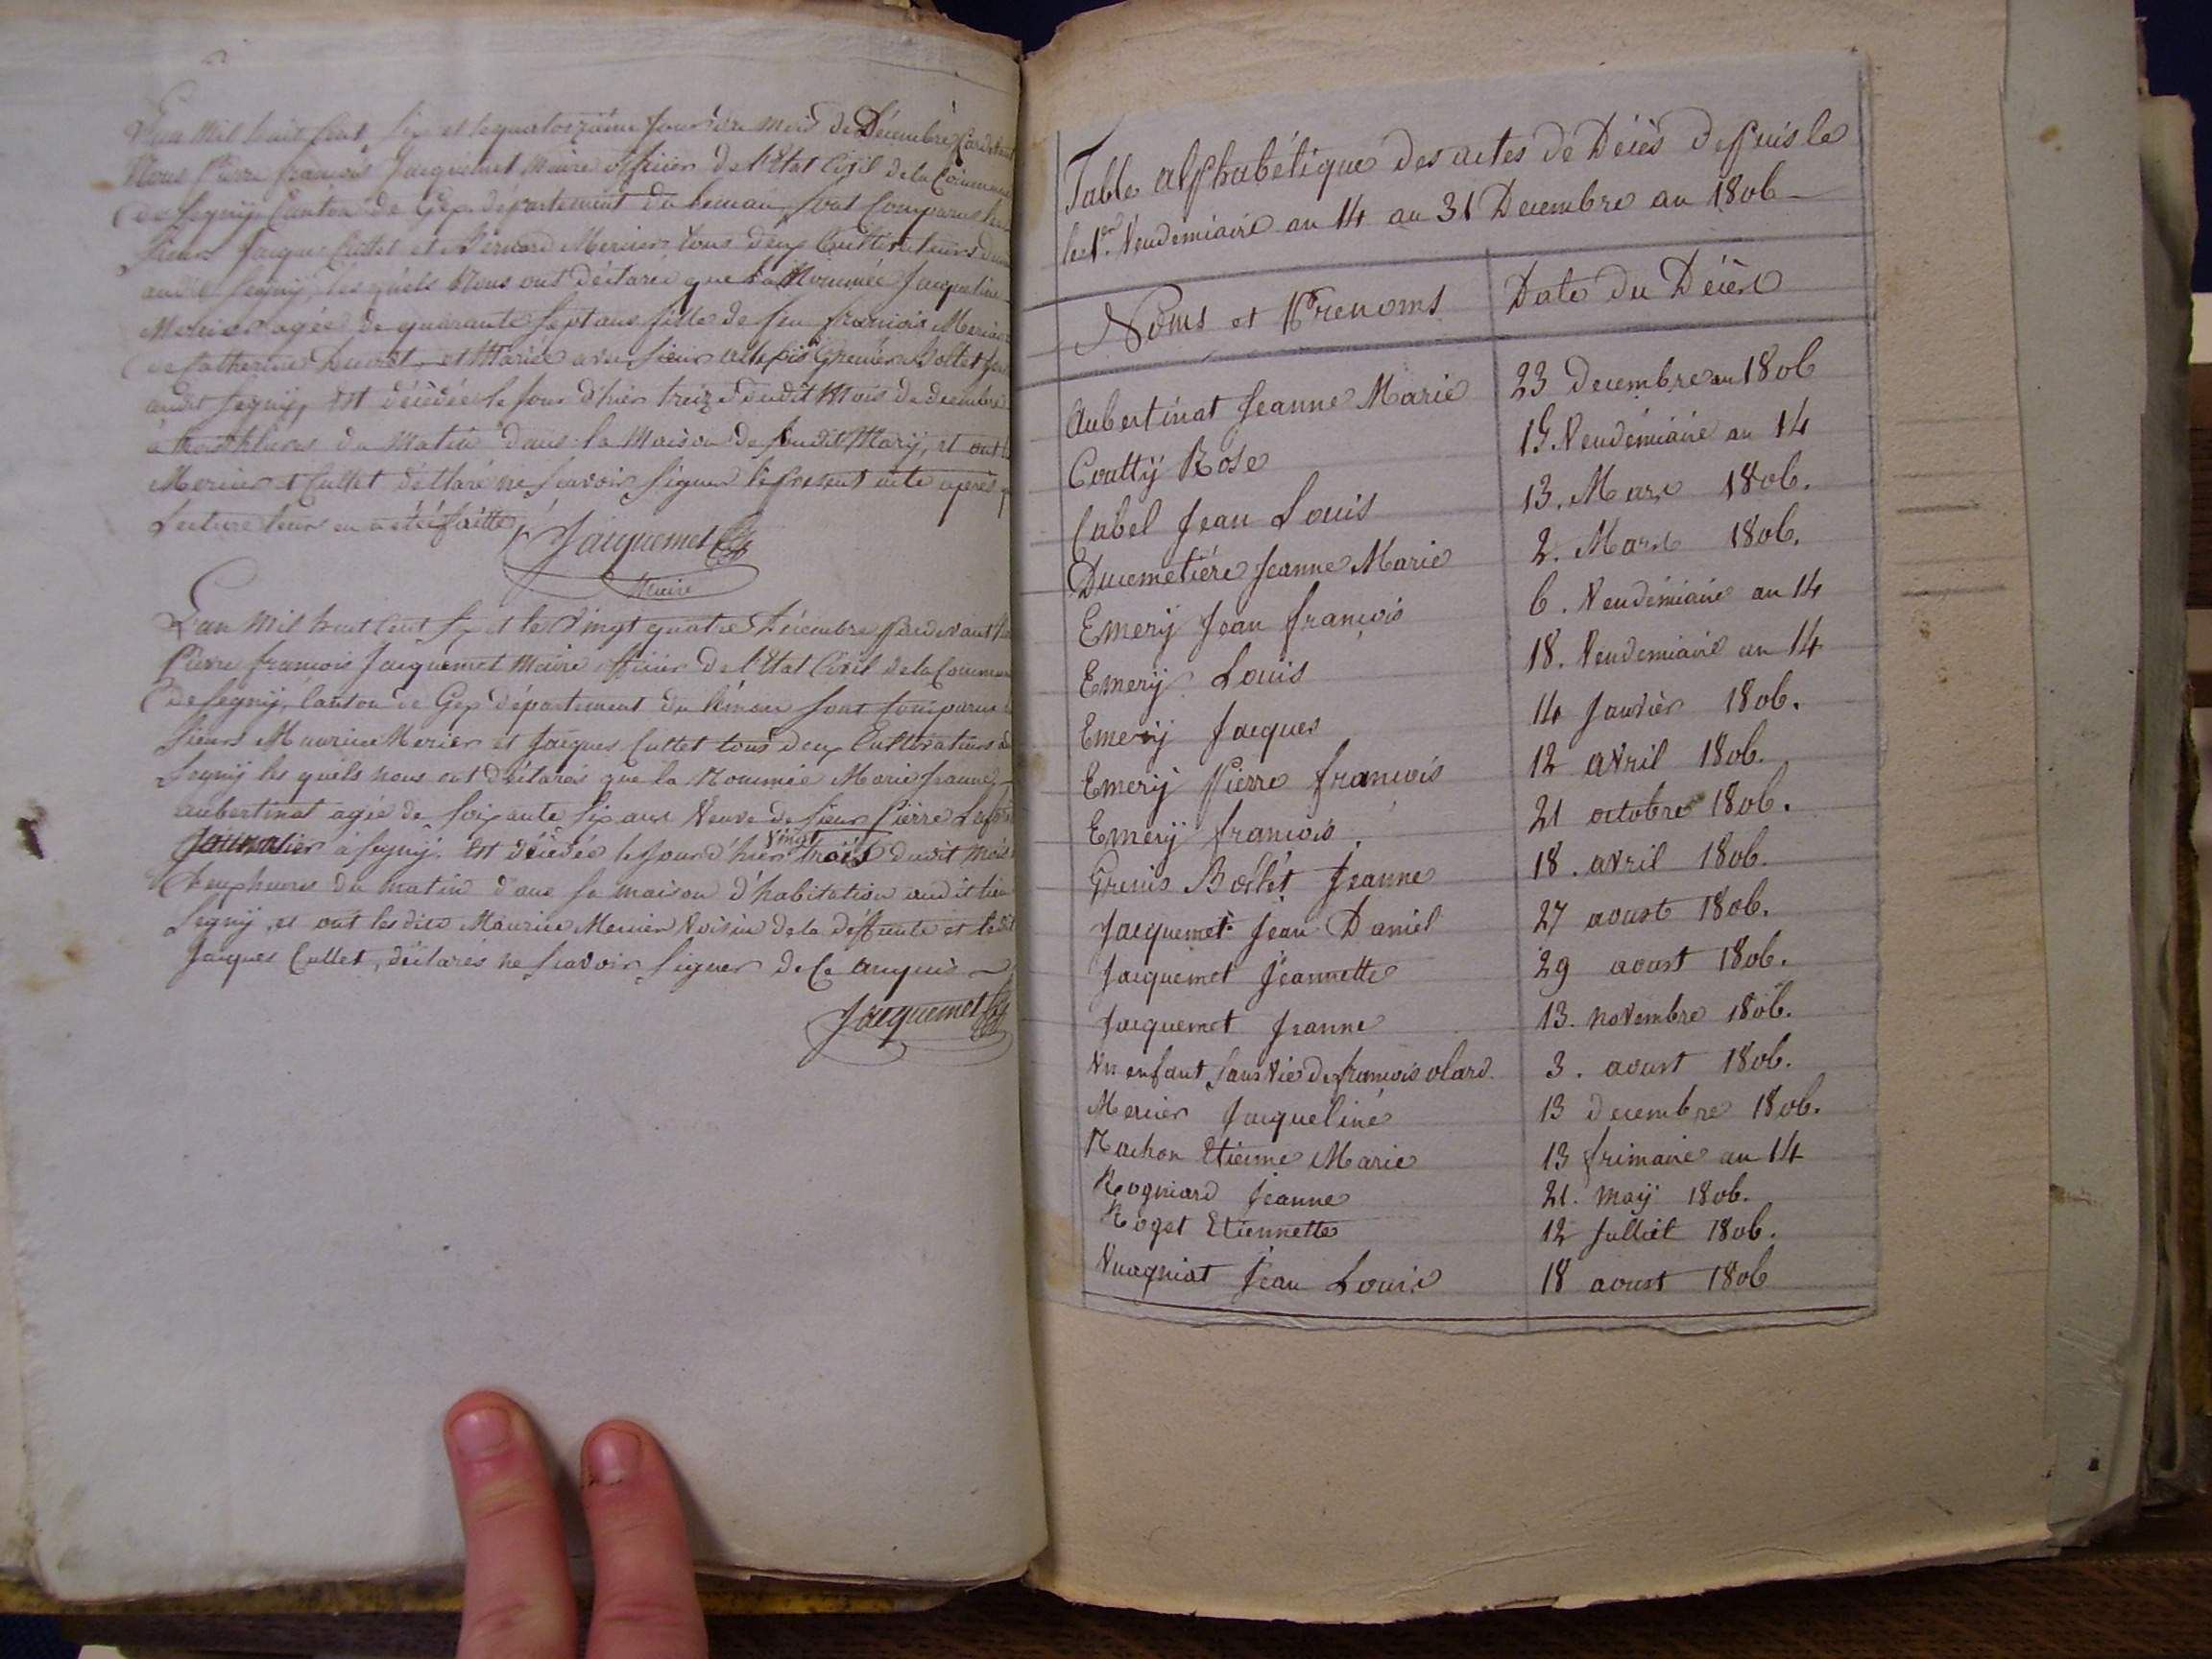 L'an Mil huit Cent Six et le quatorzième Jour du Mois de Décembre Pardevant
Nous Pierre françois Jacquemet Maire officier de l'Etat Civil de la Commune
de Segnÿ Canton de Gex département du Léman, sont Comparus les
Sieurs Jacque Cullet et Bernard Mercier tous deux Cultivateurs
audit Segnÿ, les quels Nous ont déclaré que la Nommée Jacqueline
Mercier agée de quarante sept ans fille de feu françois Mercier
de Catherine et Mariée avec Sieur Grenier Bollet
audit Segnÿ, Est décédée le Jour d'hier treize dudit Mois de decembre
à trois heures du Matin dans la Maison de sondit Marÿ, et ont
Mercier et Cullet déclaré ne scavoir signer le present acte après
Lecture leur en a été faitte
Jacquemet
Maire
L'an Mil huit Cent Six et le Vingt quatre Décembre Pardevant
Pierre francois Jacquemet Maire officier de l'Etat Civil de la Commune
de Segnÿ, Canton de Gex département du Léman sont Comparus
Sieurs Maurice Mercier et Jacques Cullet tous deux Cultivateurs
Segnÿ les quels nous ont déclarés que la Nommée Marie Jeanne
aubertinat agée de soixante six ans Veuve de Sieur Pierre
Journalier à Segnÿ. Est décédée le Jour d'hier Vingt trois dudit Mois
Deux heures du matin dans sa maison d'habitation audit lieu
Segnÿ, et ont les dits Maurice Mercier Voisin de la deffunte et ledit
Jacques Cullet, déclarés ne scavoir signer de Ce anquis
Jacquemet
Table alphabétique des actes de Décès depuis le
le 1er. Vendemiaire an 14 au 31 Decembre an 1806
Noms et Prenoms Date du Décès
Aubertinat Jeanne Marie 23 decembre an 1806
Couttÿ Rose 19. Vendémiaire an 14
Cabel Jean Louis 13. Mars 1806.
Ducemetiére Jeanne Marie 2. Mars 1806.
Emerÿ Jean françois 6. Vendémiaire an 14
Emerÿ Louis 18. Vendemiaire an 14
Emerÿ Jacques 14 Janvier 1806.
Emerÿ Pierre françois 12 avril 1806.
Emerÿ francois 21 octobre 1806.
Grenis Bollet Jeanne 18. avril 1806.
Jacquemet Jean Daniel 27 aoust 1806.
Jacquemet Jeannette 29 aoust 1806.
Jacquemet Jeanne 13. novembre 1806.
Un enfant sans Vie de francois olard. 3. aoust 1806.
Mercier Jacqueline 13 decembre 1806.
Nachon Etienne Marie 13 frimaire an 14
Rogniard Jeanne 21. maÿ 1806.
Roget Etiennette 12 Julliet 1806.
Vuagniat Jean Louis 18 aoust 1806